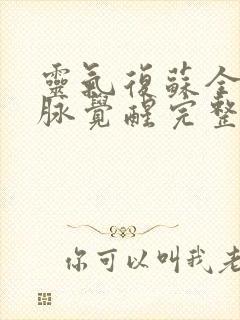 靈氣復蘇全
脈覺醒完整
你可以叫我老